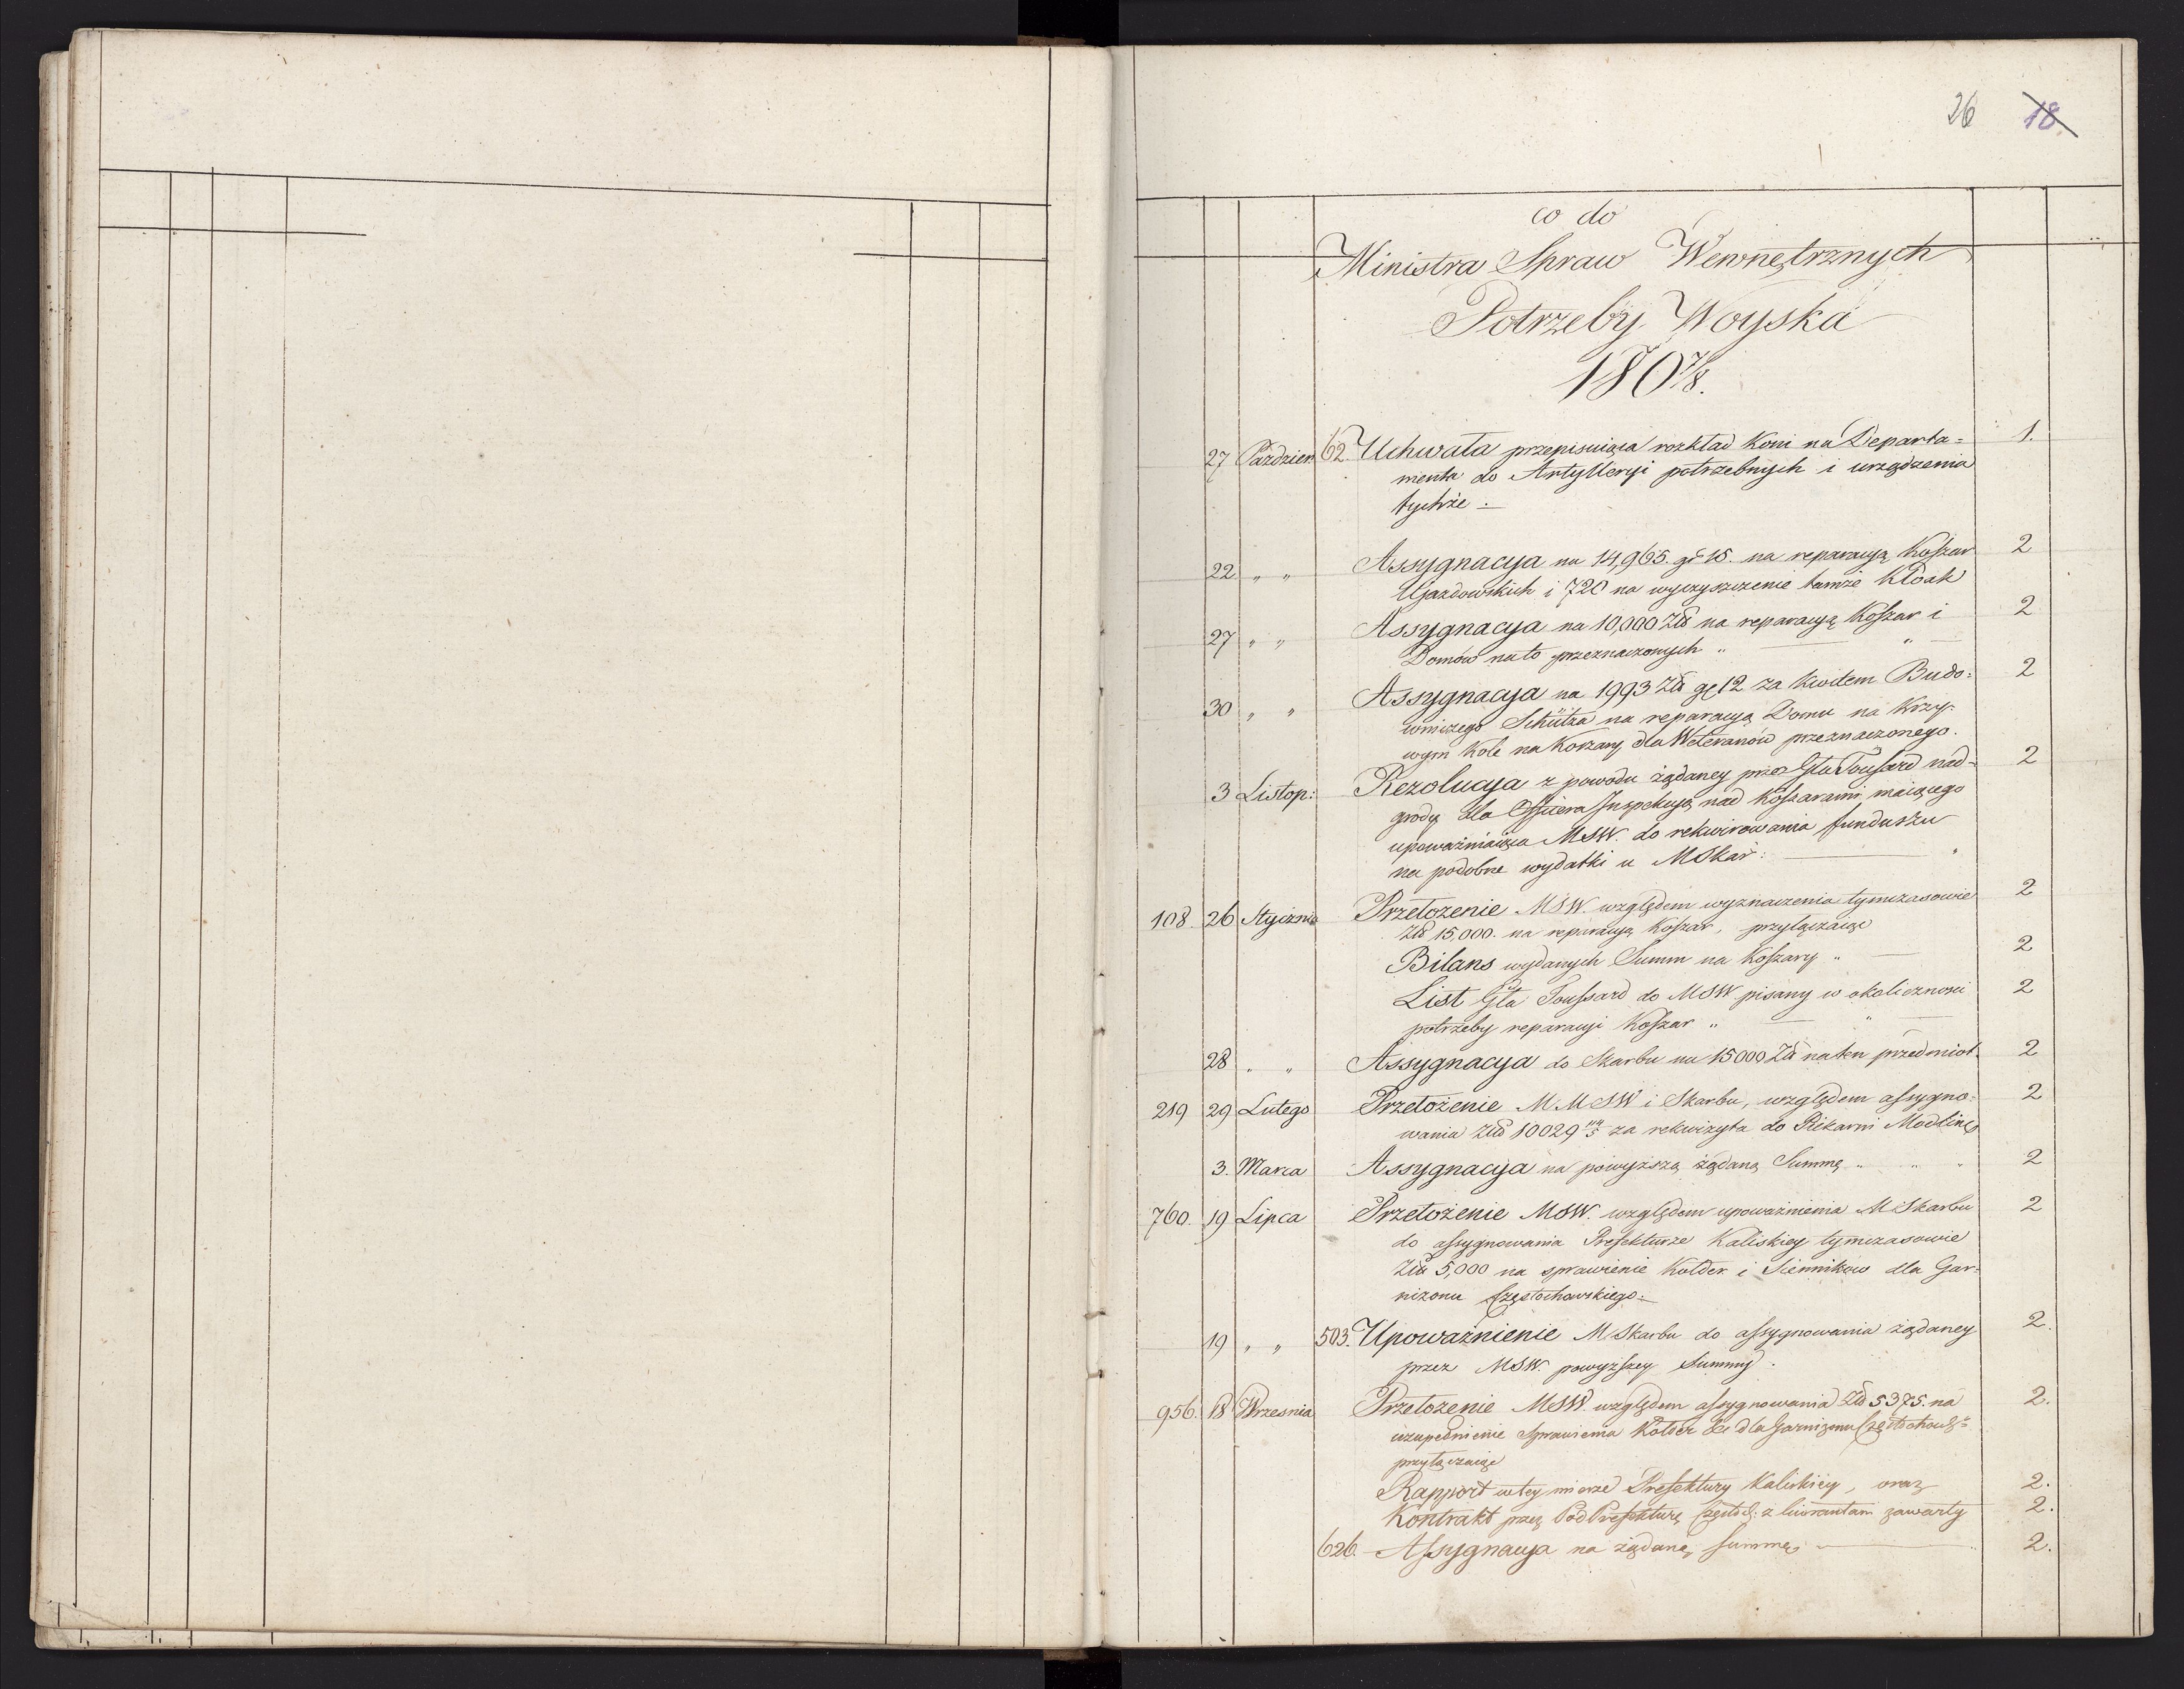 26 18.
co do
Ministra Spraw Wewnętrznych
Potrzeby Woyska
180 7/8.
27 Paździer: 62. Uchwała przepisuiąca rozkład Koni na Departa= 1.
menta do Artylleryi potrzebnych i urządzenia
tychże .
22 " " Assygnacya na 14,965. gr 15. na reparacyą Koszar 2
Ujazdowskich i 720 na wyczyszczenie tamże Kloak
27 " " Assygnacya na 10,000 Złł na reparacyą Koszar i 2
Domów nato przeznaczonych "
30 " " Assygnacya na 1993 Złł gr 12 za Kwitem Budo= 2
wniczego Schütza na reparacyą Domu na Krzy-
wym Kole na Koszary dla Weteranów przeznaczonego.
3 Listop: Rezolucya z powodu żądaney przez Gła Toussard nad= 2
grody dla Officera Inspekcyą nad Koszarami maiącego
upoważniaiąca MSW. do rekwirowania funduszu
na podobne wydatki u MSkar:
108. 26 Stycznia Przełożenie MSW. względem wyznaczenia tymczasowie 2
Złł 15,000. na reparacyą Koszar, przyłączaiąc
Bilans wydanych Summ na Koszary " 2
List Gła Toussard do MSW pisany w okoliczności 2
potrzeby reparacyi Koszar "
28 " " Assygnacya do Skarbu na 15000 Złł na ten przedmiot. 2
219 29 Lutego Przełożenie M.MSW i Skarbu, względem assygno= 2
wania Złł 10029 za rekwizyta do Piekarni Modlins
3. Marca Assygnacya na powyższą żądaną Summę " " " 2
760. 19 Lipca Przełożenie MSW. względem upoważnienia MSkarbu 2
do assygnowania Prefekturze Kaliskiey tymczasowie
Złł 5,000 na sprawienie Kołder i Sienników dla Gar=
nizonu Częstochowskiego.
19 " " 503. Upoważnienie MSkarbu do assygnowania żądaney 2.
przez MSW. powyższey Summy.
956. 18 Wrzesnia Przełożenie MSW. względem assygnowania Złł 5375. na 2.
uzupełnienie sprawienia Kołder &c dla Garnizonu Częstochows=
przyłączaiąc
Rapport w tey mierze Prefektury Kaliskiey, oraz 2.
Kontrakt przez PodPrefekturę Częstoch: z liwrantam zawarty 2.
626. Assygnacya na żądaną summę 2.